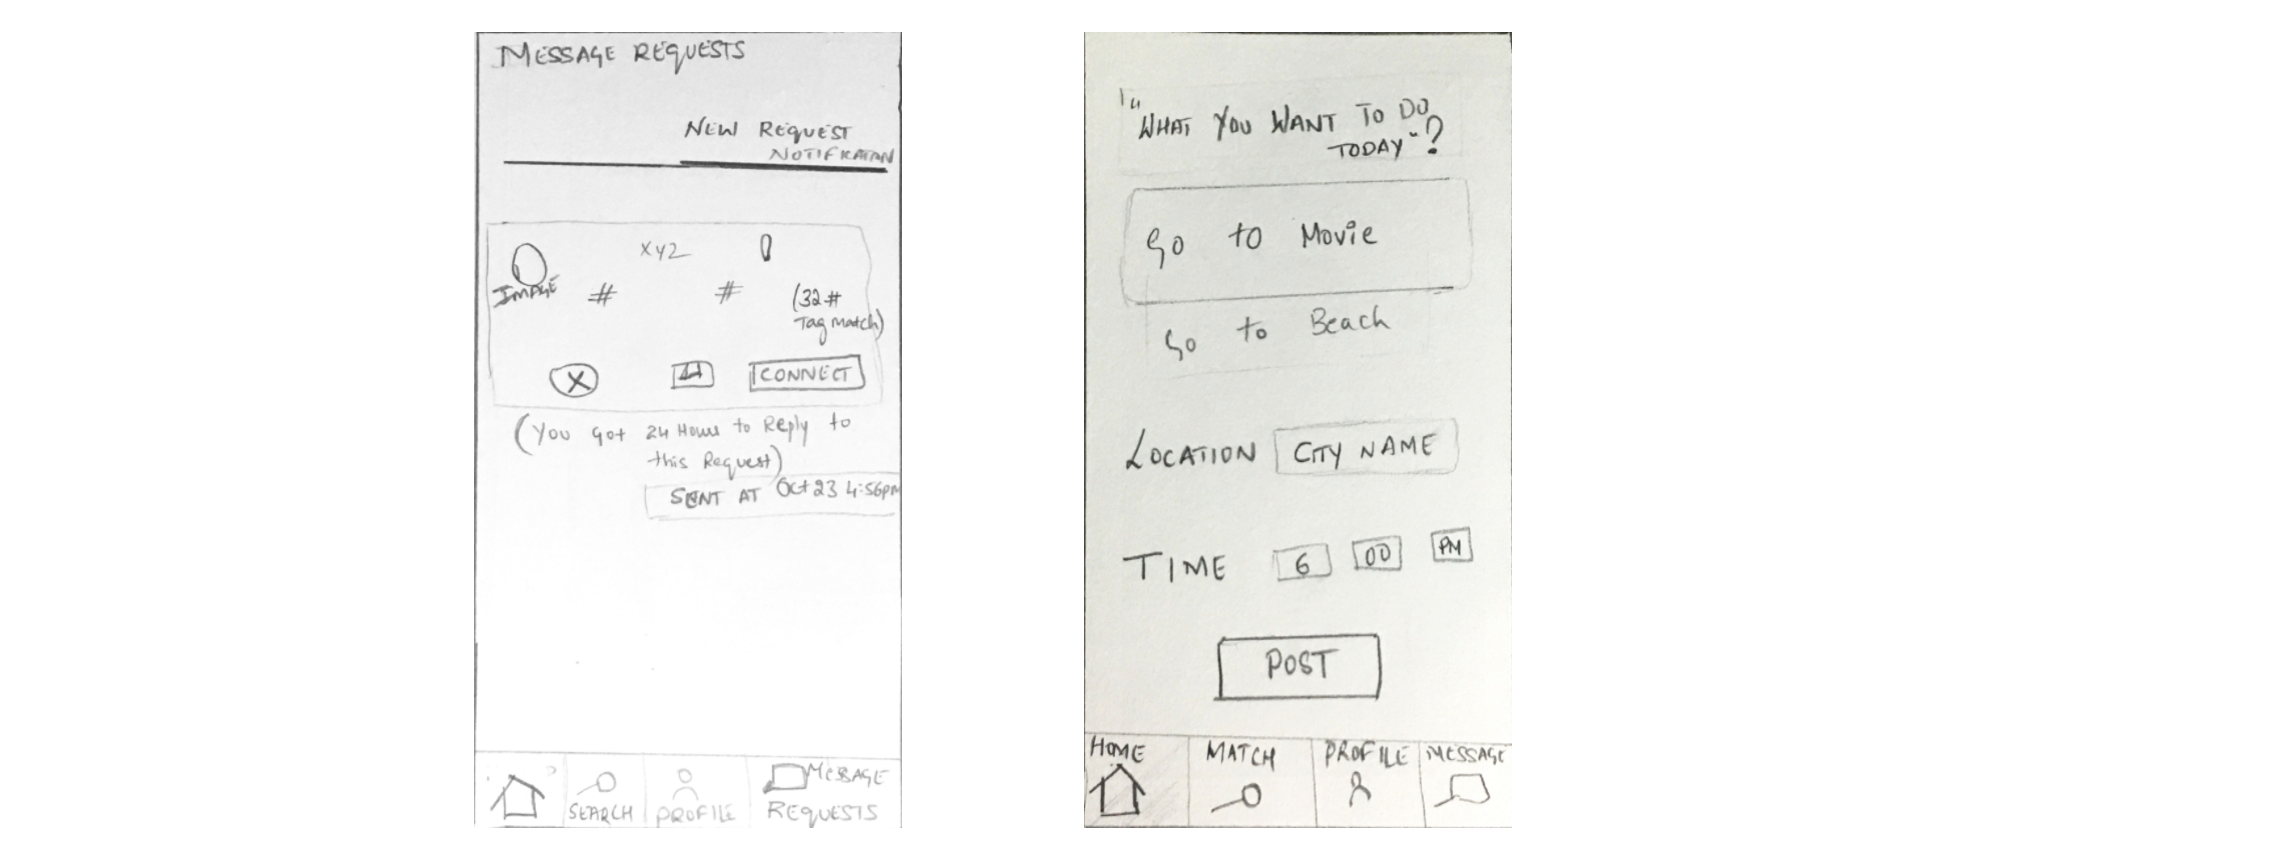 MESSAGE REQUESTS
NEW REQUEST
NOTIFICATION
xyz
IMAGE
#
#
(32 #
Tag Match)
X
CONNECT
(You got 24 Hours to Reply to
this Request)
SENT AT Oct 23 4:56pm
SEARCH
PROFILE
MESSAGE
REQUESTS
"WHAT YOU WANT TO DO
TODAY"?
Go to Movie
Go to Beach
LOCATION CITY NAME
TIME 6 00 PM
POST
HOME
MATCH
PROFILE
MESSAGE